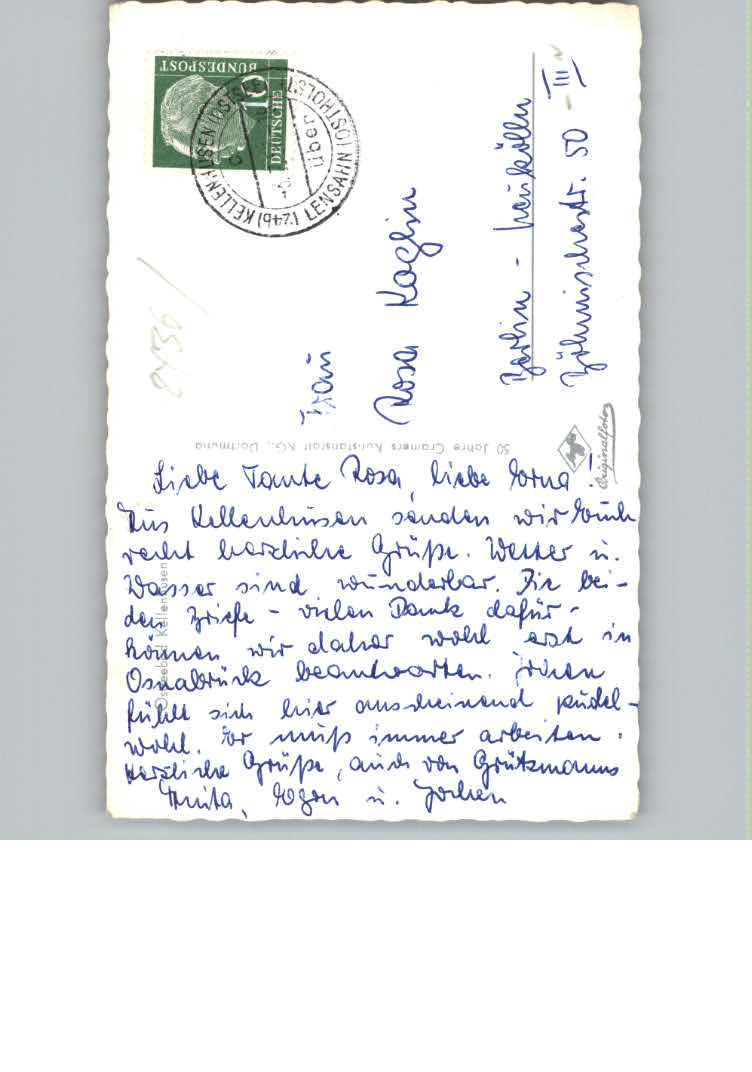 DEUTSCHE
BUNDESPOST
10
(24b) LENSAHN (OSTHOLST)
über
KELLENHUSEN (OSTSEE)
8436/
Frau
Rosa Koglin
Berlin - Neukölln
Böhmischestr. 50 - III
50 Jahre Cramers Kunstanstalt KG., Dortmund
Agfa
Originalfoto
Ostseebad Kellenhusen
Liebe Tante Rosa, liebe Erna!
Aus Kellenhusen senden wir Euch
recht herzliche Grüße. Wetter u.
Wasser sind wunderbar. Die bei-
den Briefe - vielen Dank dafür -
können wir daher wohl erst in
Osnabrück beantworten. Jochen
fühlt sich hier anscheinend pudel-
wohl. Er muß immer arbeiten.
Herzliche Grüße, auch von Grützmanns
Anita, Egon u. Jochen